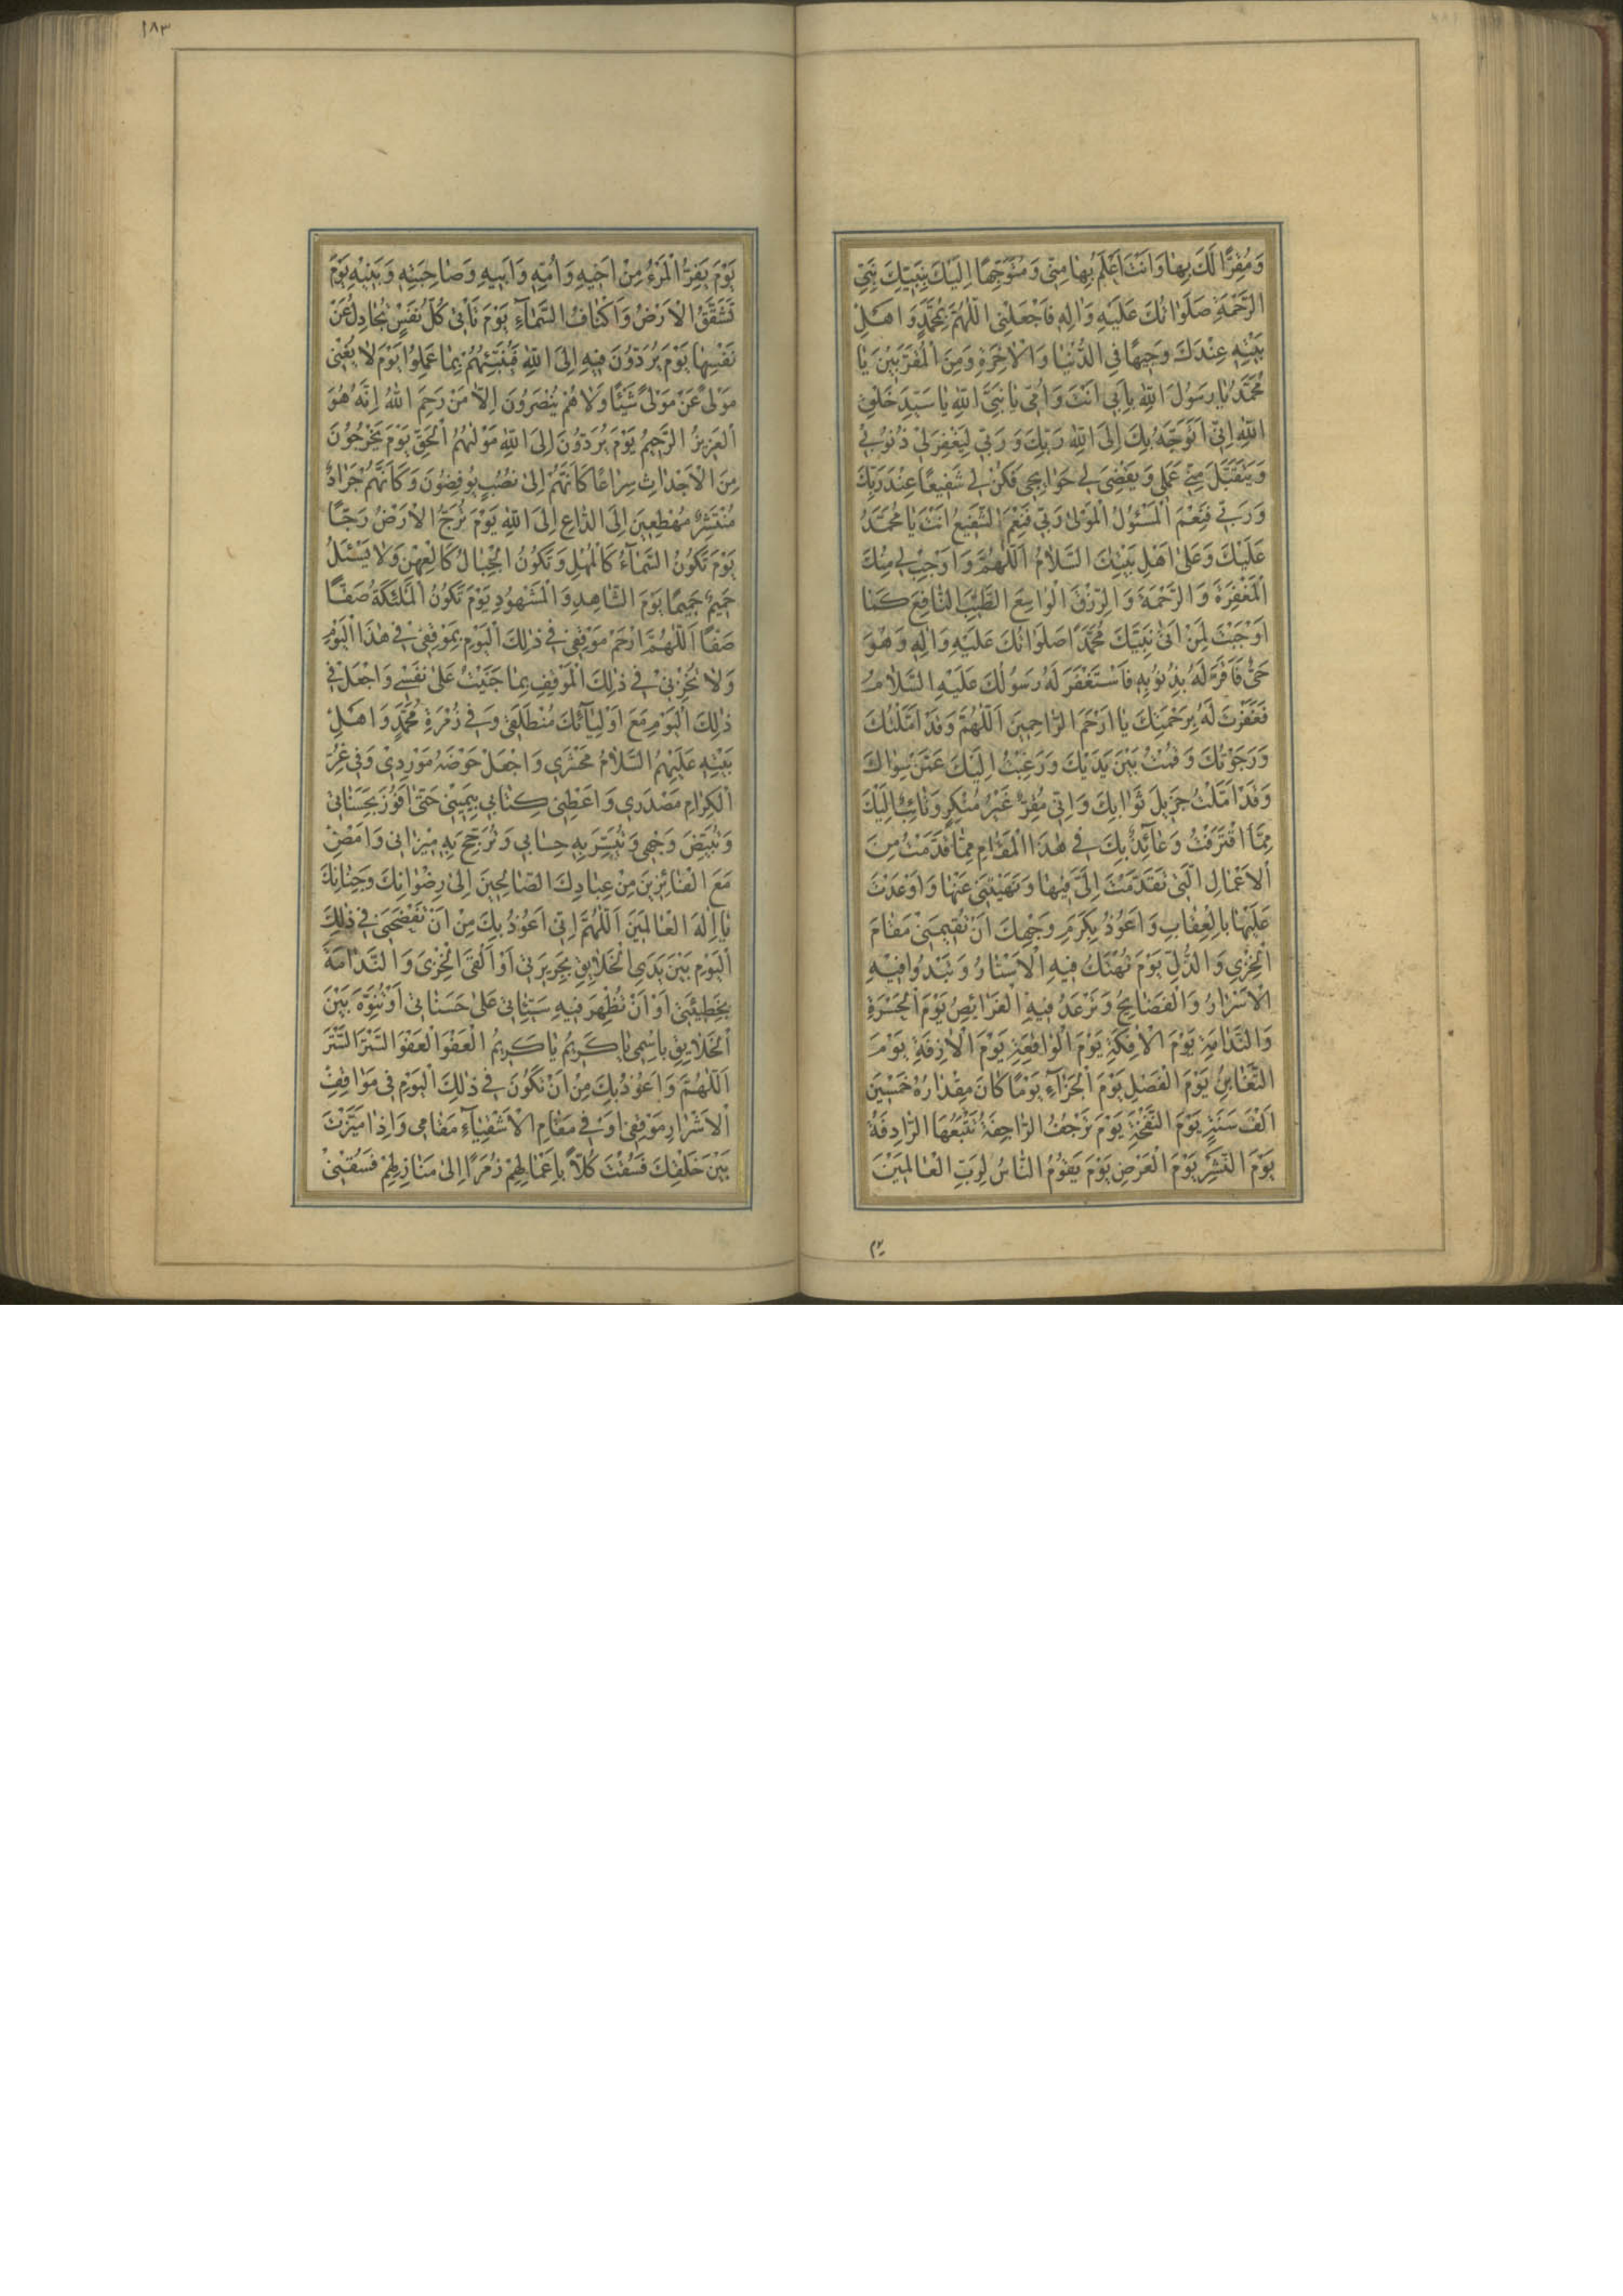 وَمُقِرًّا لَكَ بِهَا وَاَنْتَ اَعْلَمُ بِهَا مِنّى وَمُتَوَجِّهًا اِلَيْكَ بِنَبِيِّكَ نَبِىِّ
الرَّحْمَةِ صَلَوَاتُكَ عَلَيْهِ وَالِهِ فَاجْعَلْنِى اللّهُمَّ بِمُحَمَّدٍ وَاَهْلِ
بَيْتِهِ عِنْدَكَ وَجِيهًا فِى الدُّنْيَا وَالْاخِرَةِ وَمِنَ الْمُقَرَّبينَ يَا
مُحَمَّدُ يَا رَسُولَ اللّهِ بِاَبى اَنْتَ وَاُمّى يَا نَبِىَّ اللّهِ يَا سَيِّدَ خَلْقِ
اللّهِ اِنّى اَتَوَجَّهُ بِكَ اِلَى اللّهِ رَبِّكَ وَرَبّى لِيَغْفِرَ لى ذُنُوبى
وَيَتَقَبَّلَ مِنّى عَمَلى وَيَقْضِىَ لى حَوَائِجى فَكُنْ لى شَفيعًا عِنْدَ رَبِّكَ
وَرَبّى فَنِعْمَ الْمَسْئُولُ الْمَوْلى رَبّى فَنِعْمَ الشَّفيعُ اَنْتَ يَا مُحَمَّدُ
عَلَيْكَ وَعَلى اَهْلِ بَيْتِكَ السَّلَامُ اَللّهُمَّ وَاَوْجِبْ لى مِنْكَ
الْمَغْفِرَةَ وَالرَّحْمَةَ وَالرِّزْقَ الْوَاسِعَ الطَّيِّبَ النَّافِعَ كَمَا
اَوْجَبْتَ لِمَنْ اَتى نَبِيَّكَ مُحَمَّدًا صَلَوَاتُكَ عَلَيْهِ وَالِهِ وَهُوَ
حَىٌّ فَاَقَرَّ لَهُ بِذُنُوبِهِ فَاسْتَغْفَرَ لَهُ رَسُولُكَ عَلَيْهِ السَّلَامُ
فَغَفَرْتَ لَهُ بِرَحْمَتِكَ يَا اَرْحَمَ الرَّاحِمينَ اَللّهُمَّ وَقَدْ اَمَّلْتُكَ
وَرَجَوْتُكَ وَقُمْتُ بَيْنَ يَدَيْكَ وَرَغِبْتُ اِلَيْكَ عَمَّنْ سِوَاكَ
وَقَدْ اَمَّلْتُ جَزيلَ ثَوَابِكَ وَاِنّى مُقِرٌّ غَيْرُ مُنْكِرٍ وَتَائِبٌ اِلَيْكَ
مِمَّا اقْتَرَفْتُ وَعَآئِذٌ بِكَ فى هذَا الْمَقَامِ مِمَّا قَدَّمْتُ مِنَ
الْاَعْمَالِ الَّتى تَقَدَّمْتَ اِلَىَّ فيهَا وَنَهَيْتَنى عَنْهَا وَاَوْعَدْتَ
عَلَيْهَا بِالْعِقَابِ وَاَعُوذُ بِكَرَمِ وَجْهِكَ اَنْ تُقيمَنى مَقَامَ
الْخِزْىِ وَالذُّلِّ يَوْمَ تُهْتَكُ فيهِ الْاَسْتَارُ وَتَبْدُو فيهِ
الْاَسْرَارُ وَالْفَضَايِحُ وَتَرْعَدُ فيهِ الْفَرَائِصُ يَوْمَ الْحَسْرَةِ
وَالنَّدَامَةِ يَوْمَ الْافِكَةِ يَوْمَ الْوَاقِعَةِ يَوْمَ الْازِفَةِ يَوْمَ
التَّغَابُنِ يَوْمَ الْفَصْلِ يَوْمَ الْجَزَآءِ يَوْمًا كَانَ مِقْدَارُهُ خَمْسينَ
اَلْفَ سَنَةٍ يَوْمَ النَّفْخَةِ يَوْمَ تَرْجُفُ الرَّاجِفَةُ تَتْبَعُهَا الرَّادِفَةُ
يَوْمَ النَّشْرِ يَوْمَ الْعَرْضِ يَوْمَ يَقُومُ النَّاسُ لِرَبِّ الْعَالَمينَ
يوم
١٨٣
يَوْمَ يَفِرُّ الْمَرْءُ مِنْ اَخيهِ وَاُمِّهِ وَاَبيهِ وَصَاحِبَتِهِ وَبَنيهِ يَوْمَ
تَشَقَّقُ الْاَرْضُ وَاَكْنَافُ السَّمَآءِ يَوْمَ تَاْتى كُلُّ نَفْسٍ تُجَادِلُ عَنْ
نَفْسِهَا يَوْمَ يُرَدُّونَ فيهِ اِلَى اللّهِ فَيُنَبِّئُهُمْ بِمَا عَمِلُوا يَوْمَ لَا يُغْنى
مَوْلىً عَنْ مَوْلىً شَيْئًا وَلَا هُمْ يُنْصَرُونَ اِلَّا مَنْ رَحِمَ اللّهُ اِنَّهُ هُوَ
الْعَزيزُ الرَّحيمُ يَوْمَ يُرَدُّونَ اِلَى اللّهِ مَوْلهُمُ الْحَقِّ يَوْمَ يَخْرُجُونَ
مِنَ الْاَجْدَاثِ سِرَاعًا كَاَنَّهُمْ اِلى نُصُبٍ يُوفِضُونَ وَكَاَنَّهُمْ جَرَادٌ
مُنْتَشِرٌ مُهْطِعينَ اِلَى الدَّاعِ اِلَى اللّهِ يَوْمَ تُرَجُّ الْاَرْضُ رَجًّا
يَوْمَ تَكُونُ السَّمَآءُ كَالْمُهْلِ وَتَكُونُ الْجِبَالُ كَالْعِهْنِ وَلَا يَسْئَلُ
حَميمٌ حَميمًا يَوْمَ الشَّاهِدِ وَالْمَشْهُودِ يَوْمَ تَكُونُ الْمَلئِكَةُ صَفًّا
صَفًّا اَللّهُمَّ ارْحَمْ مَوْقِفى فى ذلِكَ الْيَوْمِ بِمَوْقِفى فى هذَا الْيَوْمِ
وَلَا تُخْزِنى فى ذلِكَ الْمَوْقِفِ بِمَا جَنَيْتُ عَلى نَفْسى وَاجْعَلْ فى
ذلِكَ الْيَوْمِ مَعَ اَوْلِيَآئِكَ مُنْطَلَقى وَفى زُمْرَةِ مُحَمَّدٍ وَاَهْلِ
بَيْتِهِ عَلَيْهِمُ السَّلَامُ مَحْشَرى وَاجْعَلْ حَوْضَهُ مَوْرِدى وَفى غُرِّ
الْكِرَامِ مَصْدَرى وَاَعْطِنى كِتَابى بِيَمينى حَتّى اَفُوزَ بِحَسَنَاتى
وَتُبَيِّضَ وَجْهى وَتُيَسِّرَ بِهِ حِسَابى وَتُرَجِّحَ بِهِ ميزَانى وَاَمْضِىَ
مَعَ الْفَائِزينَ مِنْ عِبَادِكَ الصَّالِحينَ اِلى رِضْوَانِكَ وَجِنَانِكَ
يَا اِلهَ الْعَالَمينَ اَللّهُمَّ اِنّى اَعُوذُ بِكَ مِنْ اَنْ تَفْضَحَنى فى ذلِكَ
الْيَوْمِ بَيْنَ يَدَىِ الْخَلَايِقِ بِجَريرَتى اَوْ اَلْقَى الْخِزْىَ وَالنَّدَامَةَ
بِخَطيئَتى اَوْ اَنْ تُظْهِرَ فيهِ سَيِّئَاتى عَلى حَسَنَاتى اَوْ تُنَوِّهَ بَيْنَ
الْخَلَايِقِ بِاسْمى يَا كَريمُ يَا كَريمُ الْعَفْوَ الْعَفْوَ السَّتْرَ السَّتْرَ
اَللّهُمَّ وَاَعُوذُ بِكَ مِنْ اَنْ تَكُونَ فى ذلِكَ الْيَوْمِ فى مَوَاقِفِ
الْاَشْرَارِ مَوْقِفى اَوْ فى مَقَامِ الْاَشْقِيَآءِ مَقَامى وَاِذَا مَيَّزْتَ
بَيْنَ خَلْقِكَ فَسُقْتَ كُلًّا بِاَعْمَالِهِمْ زُمَرًا اِلى مَنَازِلِهِمْ فَسُقْنى